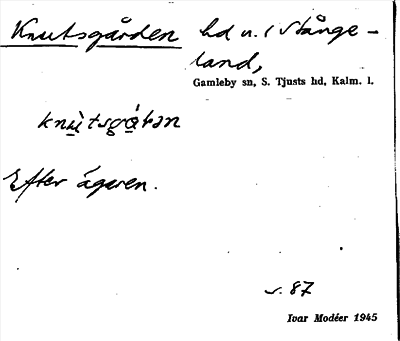 Knutsgården hd u. i Stånge-
land,
Gamleby sn, S. Tjusts hd, Kalm. l.
Efter ägaren.
s. 87
Ivar Modéer 1945